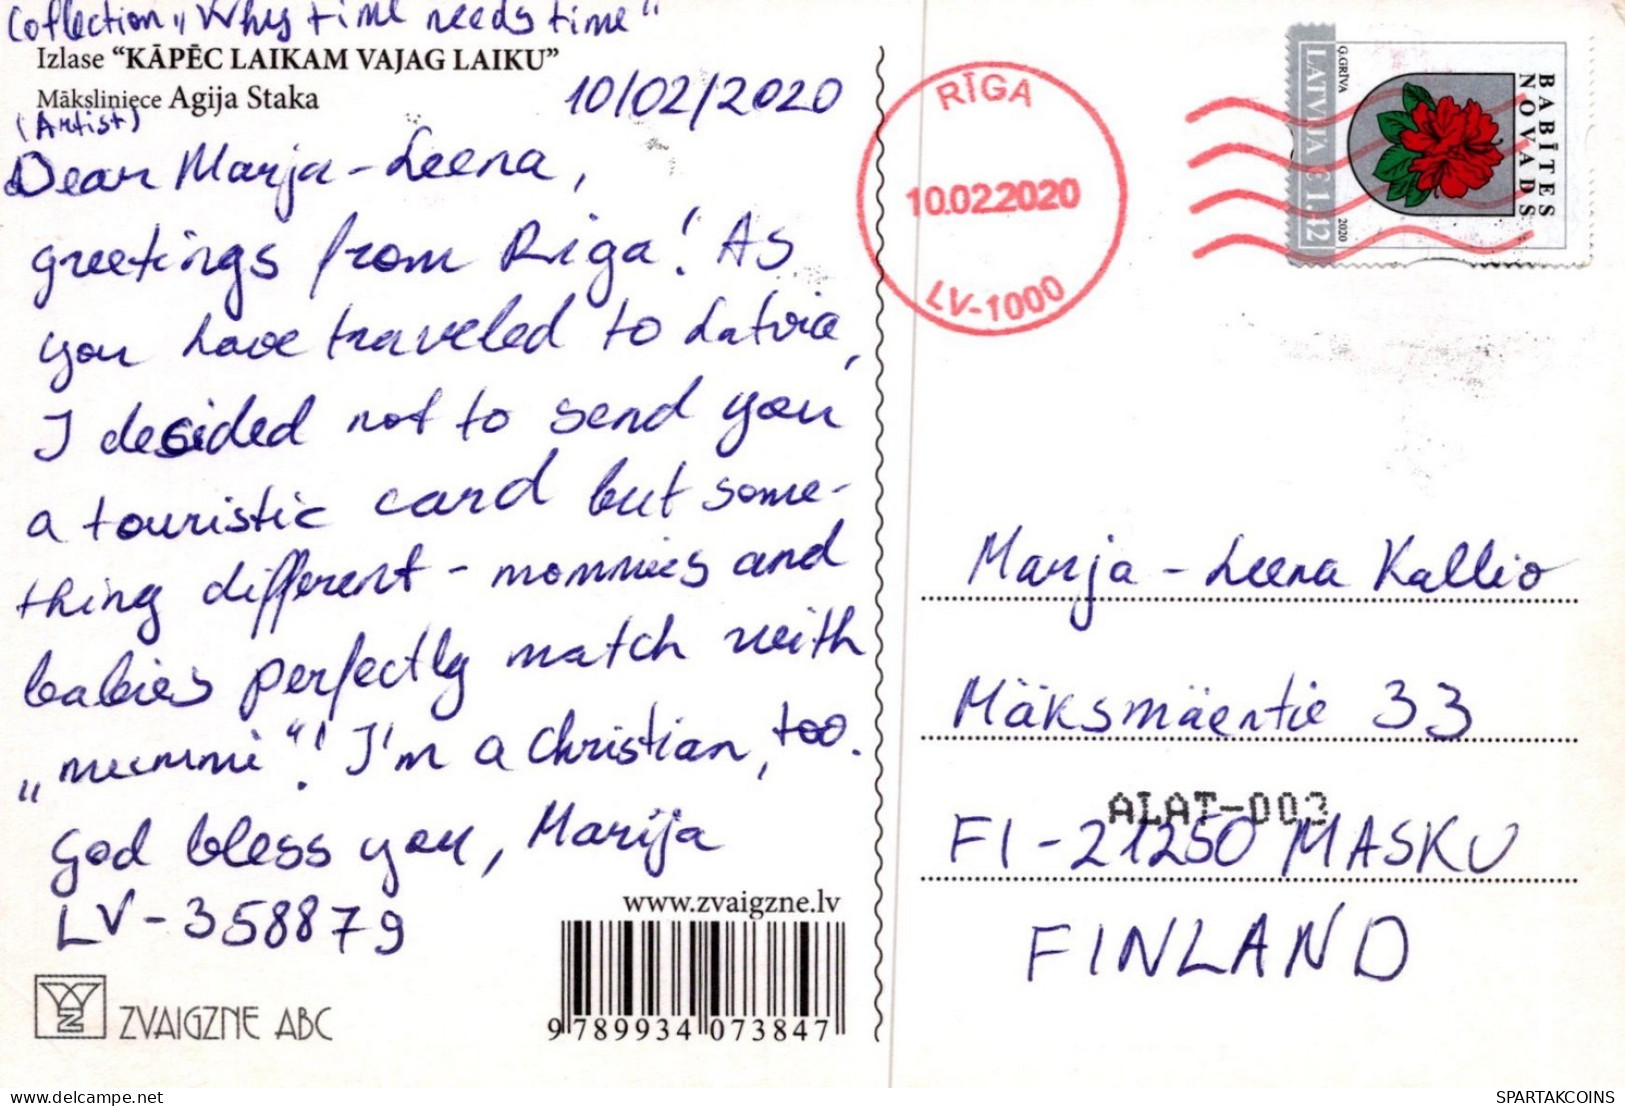 Collection „Why time needs time“
Izlase “KĀPĒC LAIKAM VAJAG LAIKU”
Māksliniece Agija Staka
(Artist)
10/02/2020
Dear Marja-Leena,
greetings from Riga! As
you have traveled to Latvia,
I desided not to send you
a touristic card but some-
thing different - mommies and
babies perfectly match with
„mummi“! I'm a Christian, too.
God bless you, Marija
LV-358879
www.zvaigzne.lv
ZVAIGZNE ABC
9 789934 073847
RĪGA
10.02.2020
LV-1000
LATVIJA € 1.42
G.GRĪVA
2020
BABĪTES
NOVADS
Marja-Leena Kallio
Mäksmäentie 33
ALAT-003
FI-21250 MASKU
FINLAND
SPARTAKCOINS
www.delcampe.net